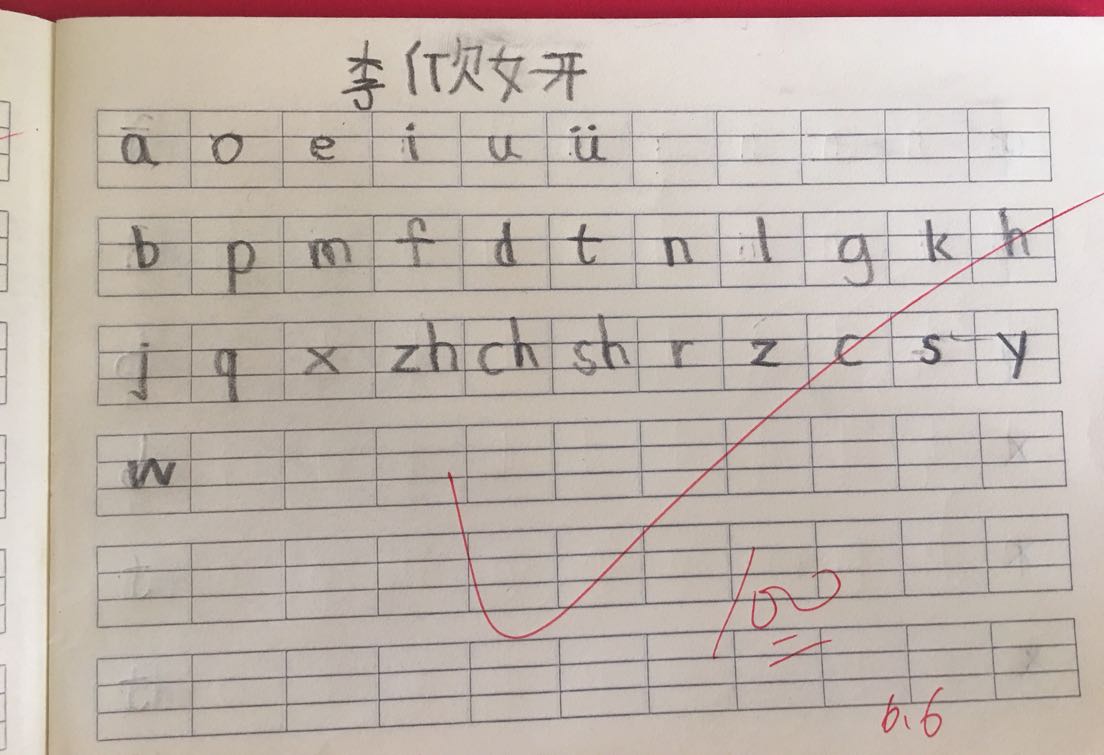 李欣妍
a o e i u ü
b p m f d t n l g k h
j q x zh ch sh r z c s y
w
100
6.6